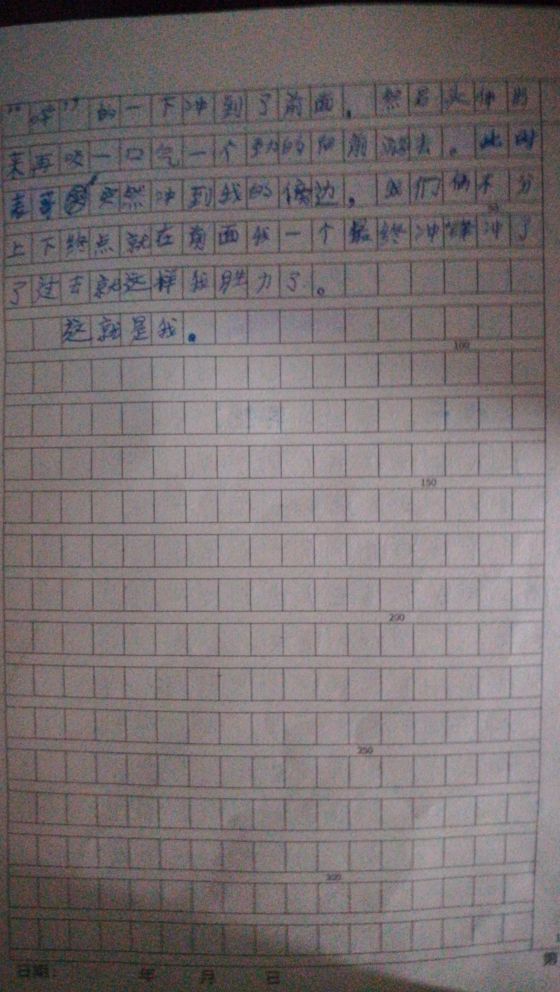 “呼”的一下冲到了前面，然后
来再吸一口气一个劲的向前游去。此时
表哥突然冲到我的侧边，我们俩不分
上下终点就在前面我一个 最终冲 冲了
了过去就这样我胜力了。
这就是我。
50
100
150
200
250
300
日期： 年 月 日
第